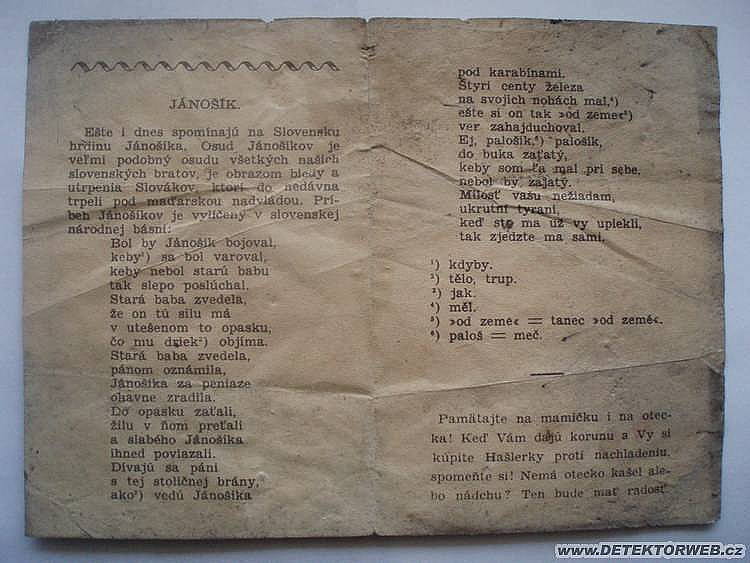 JÁNOŠÍK.
Ešte i dnes spomínajú na Slovensku
hrdinu Jánošíka. Osud Jánošíkov je
veľmi podobný osudu všetkých našich
slovenských bratov, je obrazom biedy a
utrpenia Slovákov, ktorí do nedávna
trpeli pod maďarskou nadvládou. Prí-
beh Jánošíkov je vylíčený v slovenskej
národnej básni:
Bol by Jánošík bojoval,
keby¹) sa bol varoval,
keby nebol starú babu
tak slepo poslúchal.
Stará baba zvedela,
že on tú silu má
v utešenom to opasku,
čo mu driek²) objíma.
Stará baba zvedela,
pánom oznámila,
Jánošíka za peniaze
ohavne zradila.
Do opasku zaťali,
žilu v ňom preťali
a slabého Jánošíka
ihneď poviazali.
Dívajú sa páni
s tej stoličnej brány,
ako³) vedú Jánošíka
pod karabínami.
Štyri centy železa
na svojich nohách mal,⁴)
ešte si on tak »od zeme«⁵)
ver zahajduchoval.
Ej, palošík,⁶) palošík,
do buka zaťatý,
keby som ťa mal pri sebe,
nebol by zajatý.
Milosť vašu nežiadam,
ukrutní tyrani,
keď ste ma už vy upiekli,
tak zjedzte ma sami.
¹) kdyby.
²) tělo, trup.
³) jak.
⁴) měl.
⁵) »od zeme« = tanec »od země«.
⁶) paloš = meč.
Pamätajte na mamičku i na otec-
ka! Keď Vám dajú korunu a Vy si
kúpite Hašlerky proti nachladeniu,
spomeňte si! Nemá otecko kašel ale-
bo nádchu? Ten bude mať radosť
www.DETEKTORWEB.cz